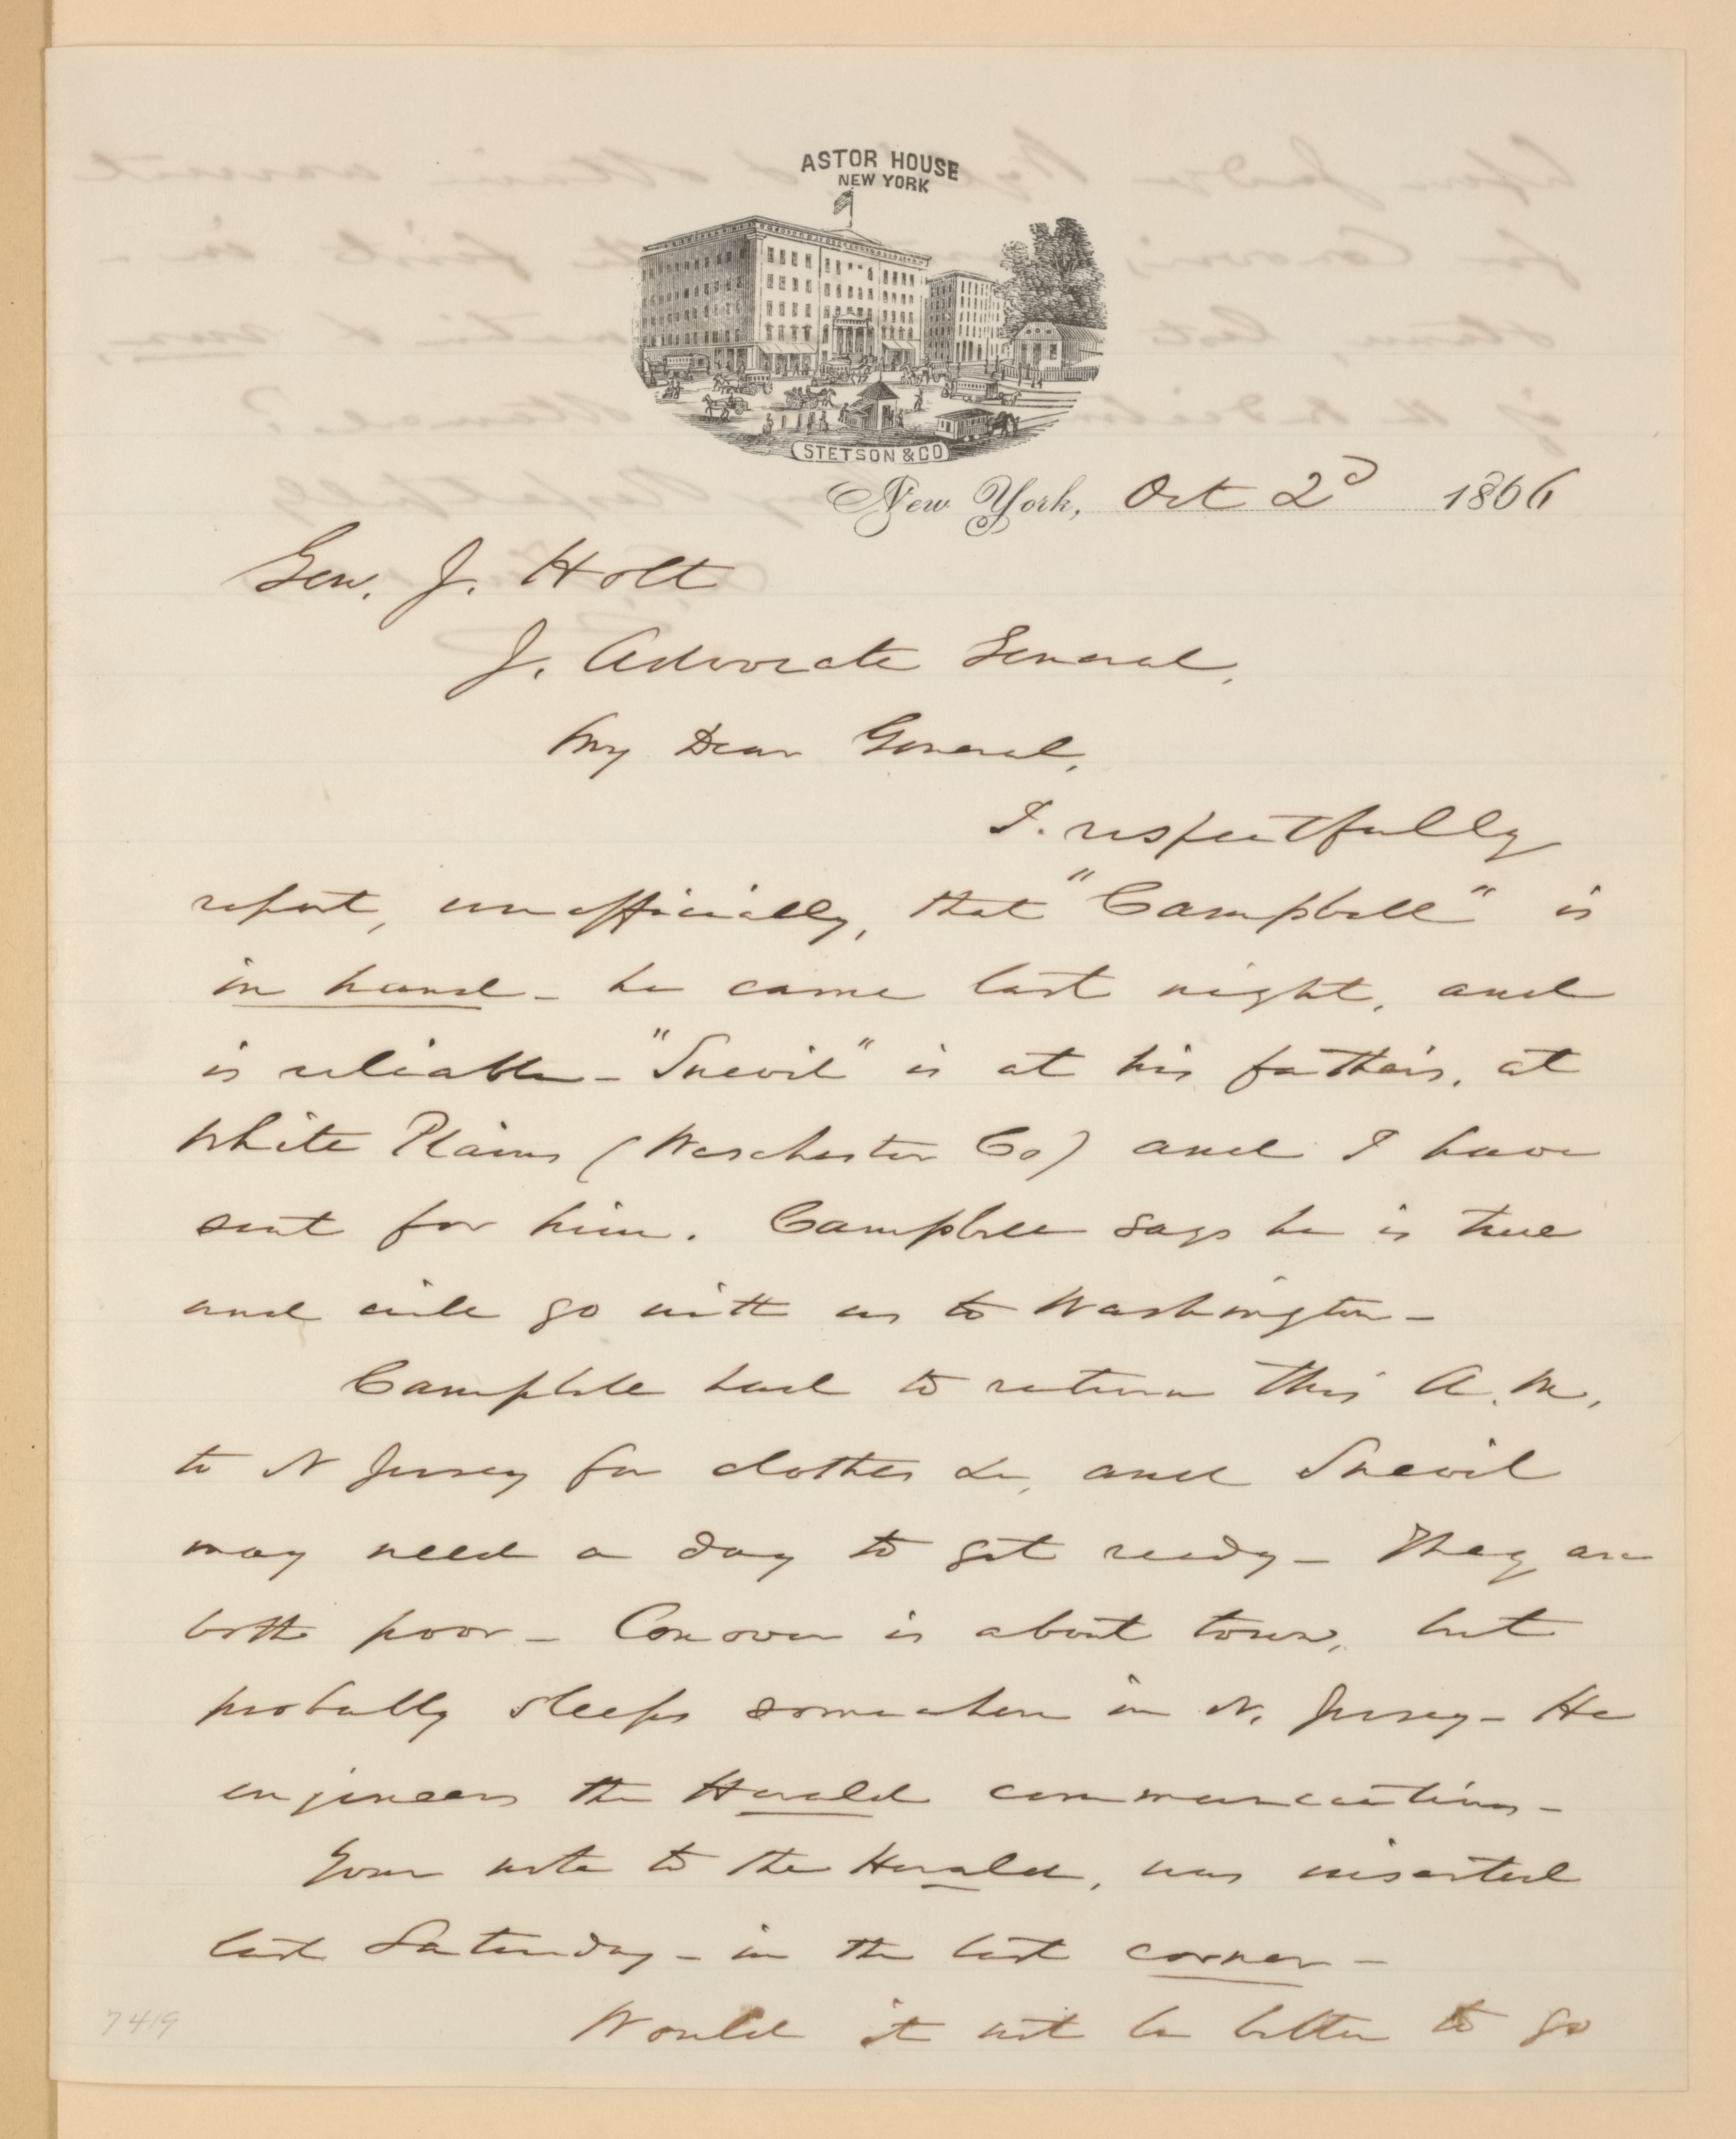 ASTOR HOUSE
NEW YORK
STETSON & CO
New York, Oct 2d 1866
Gen. J. Holt
J. Advocate General,
My Dear General,
I. respectfully
report, unofficially, that "Campbell" is
in hand - he came last night, and
is reliable - "Snevil" is at his father's, at
White Plains (Weschester Co) and I have
sent for him. Campbell says he is true
and will go with us to Washington -
Campbell had to return this A.M,
to N Jersey for clothes &c, and Snevil
may need a day to get ready - They are
both poor - Conover is about town, but
probably sleeps somewhere in N. Jersey - He
engineers the Herald communications -
Your note to the Herald, was inserted
last Saturday - in the last corner -
Would it not be better to go
7419